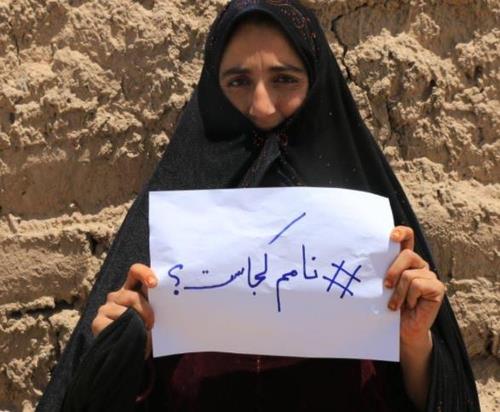 #نامم کجاست؟